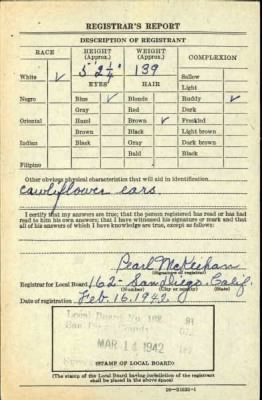 REGISTRAR'S REPORT
DESCRIPTION OF REGISTRANT
RACE HEIGHT (Approx.) WEIGHT (Approx.) COMPLEXION
5' 2 1/4" 139
White ✓ EYES HAIR Sallow
Light
Negro Blue ✓ Blonde Ruddy ✓
Gray Red Dark
Oriental Hazel Brown ✓ Freckled
Brown Black Light brown
Indian Black Gray Dark brown
Bald Black
Filipino
Other obvious physical characteristics that will aid in identification
cawlyflower ears.
I certify that my answers are true; that the person registered has read or has had
read to him his own answers; that I have witnessed his signature or mark and that
all of his answers of which I have knowledge are true, except as follows:
Pearl McKeehan
(Signature of registrar)
Registrar for Local Board 162 San Diego, Calif
(Number) (City or county) (State)
Date of registration Feb. 16, 1942
Local Board No.
San Diego County
MAR 14 1942
(STAMP OF LOCAL BOARD)
(The stamp of the Local Board having jurisdiction of the registrant
shall be placed in the above space)